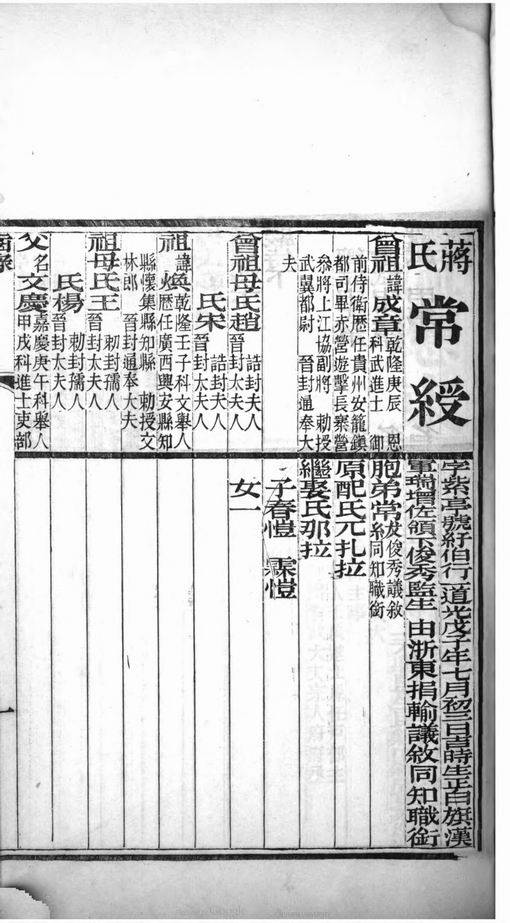 蔣氏常綬
曾祖諱成章乾隆庚辰 恩科武進士 御
前侍衛歷任貴州安籠鎮都司畢赤營遊擊長寨營
參將上江協副將 勅授武翼都尉 晉封通奉大
夫
曾祖母氏趙誥封夫人晉封太夫人
氏宋誥封夫人晉封太夫人
祖諱煥乾隆壬子科文舉人歷任廣西興安縣知
縣懷集縣知縣 勅授文林郎 晉封通奉大夫
祖母氏王勅封孺人晉封太夫人
氏楊勅封孺人晉封太夫人
父名文慶嘉慶庚午科舉人甲戌科進士吏部
字紫亭號紓伯行一道光戊子年七月初三日吉時生正白旗漢
軍瑞增佐領下俊秀監生 由浙東捐輸議敘同知職銜
胞弟常俊秀議敘同知職銜
原配氏兀扎拉
繼娶氏那拉
子春愷 霖愷
女一